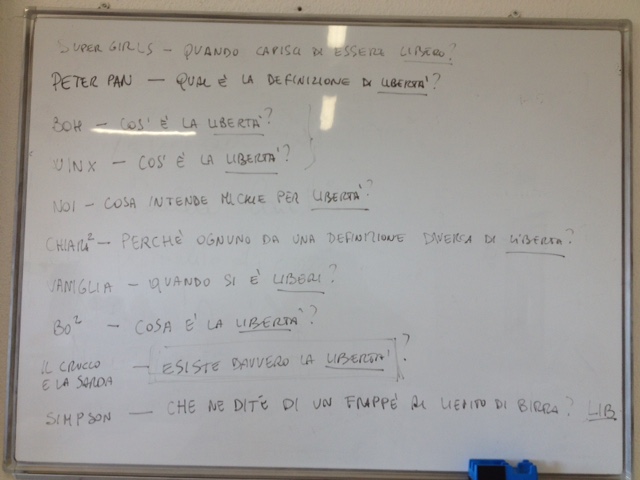 SUPER GIRLS – QUANDO CAPISCI DI ESSERE LIBERO?
PETER PAN – QUAL È LA DEFINIZIONE DI LIBERTÀ?
BOH – COS' È LA LIBERTÀ?
WINX – COS' È LA LIBERTÀ?
NOI – COSA INTENDE PER LIBERTÀ?
CHIARI² – PERCHÈ OGNUNO DA UNA DEFINIZIONE DIVERSA DI LIBERTÀ?
VANIGLIA – QUANDO SI È LIBERI?
BO² – COSA È LA LIBERTÀ?
IL CRUCCO E LA SARDA – ESISTE DAVVERO LA LIBERTÀ?
SIMPSON – CHE NE DITE DI UN FRAPPÈ AL LIEVITO DI BIRRA? LIB